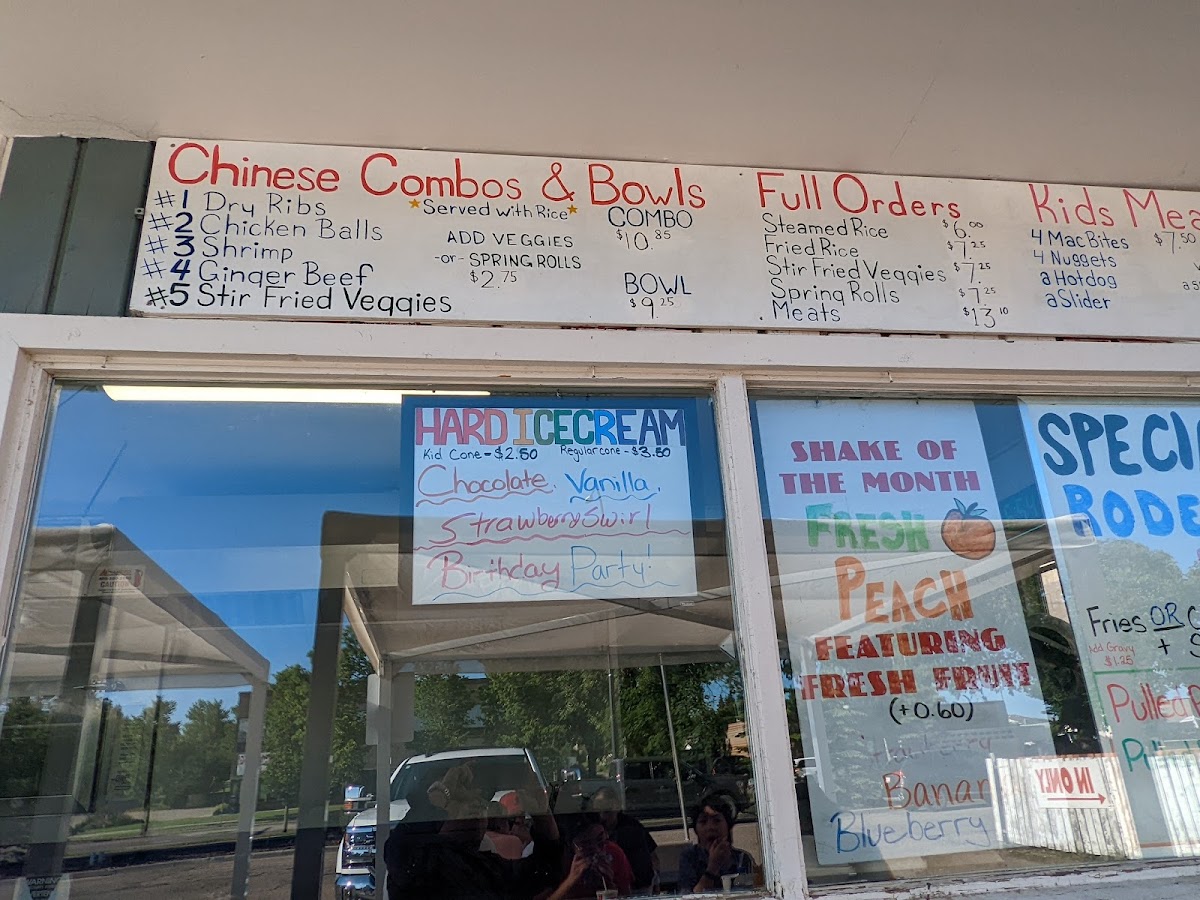 Chinese Combos & Bowls
#1 Dry Ribs
#2 Chicken Balls
#3 Shrimp
#4 Ginger Beef
#5 Stir Fried Veggies
*Served with Rice*
ADD VEGGIES
-or- SPRING ROLLS
$2.75
COMBO
$10.85
BOWL
$9.25
Full Orders
Steamed Rice $6.00
Fried Rice $7.25
Stir Fried Veggies $7.25
Spring Rolls $7.25
Meats $13.10
Kids Mea
4 Mac Bites $7.50
4 Nuggets
a Hotdog
a Slider
HARD ICECREAM
Kid Cone - $2.50 Regular cone - $3.50
Chocolate, Vanilla,
Strawberry Swirl
Birthday Party!
SHAKE OF
THE MONTH
FRESH
PEACH
FEATURING
FRESH FRUIT
(+0.60)
Banan
Blueberry
SPECI
RODE
Fries OR
Add Gravy
$1.25
+ S
Pulled
IN ONLY
CAUTION
WARNING